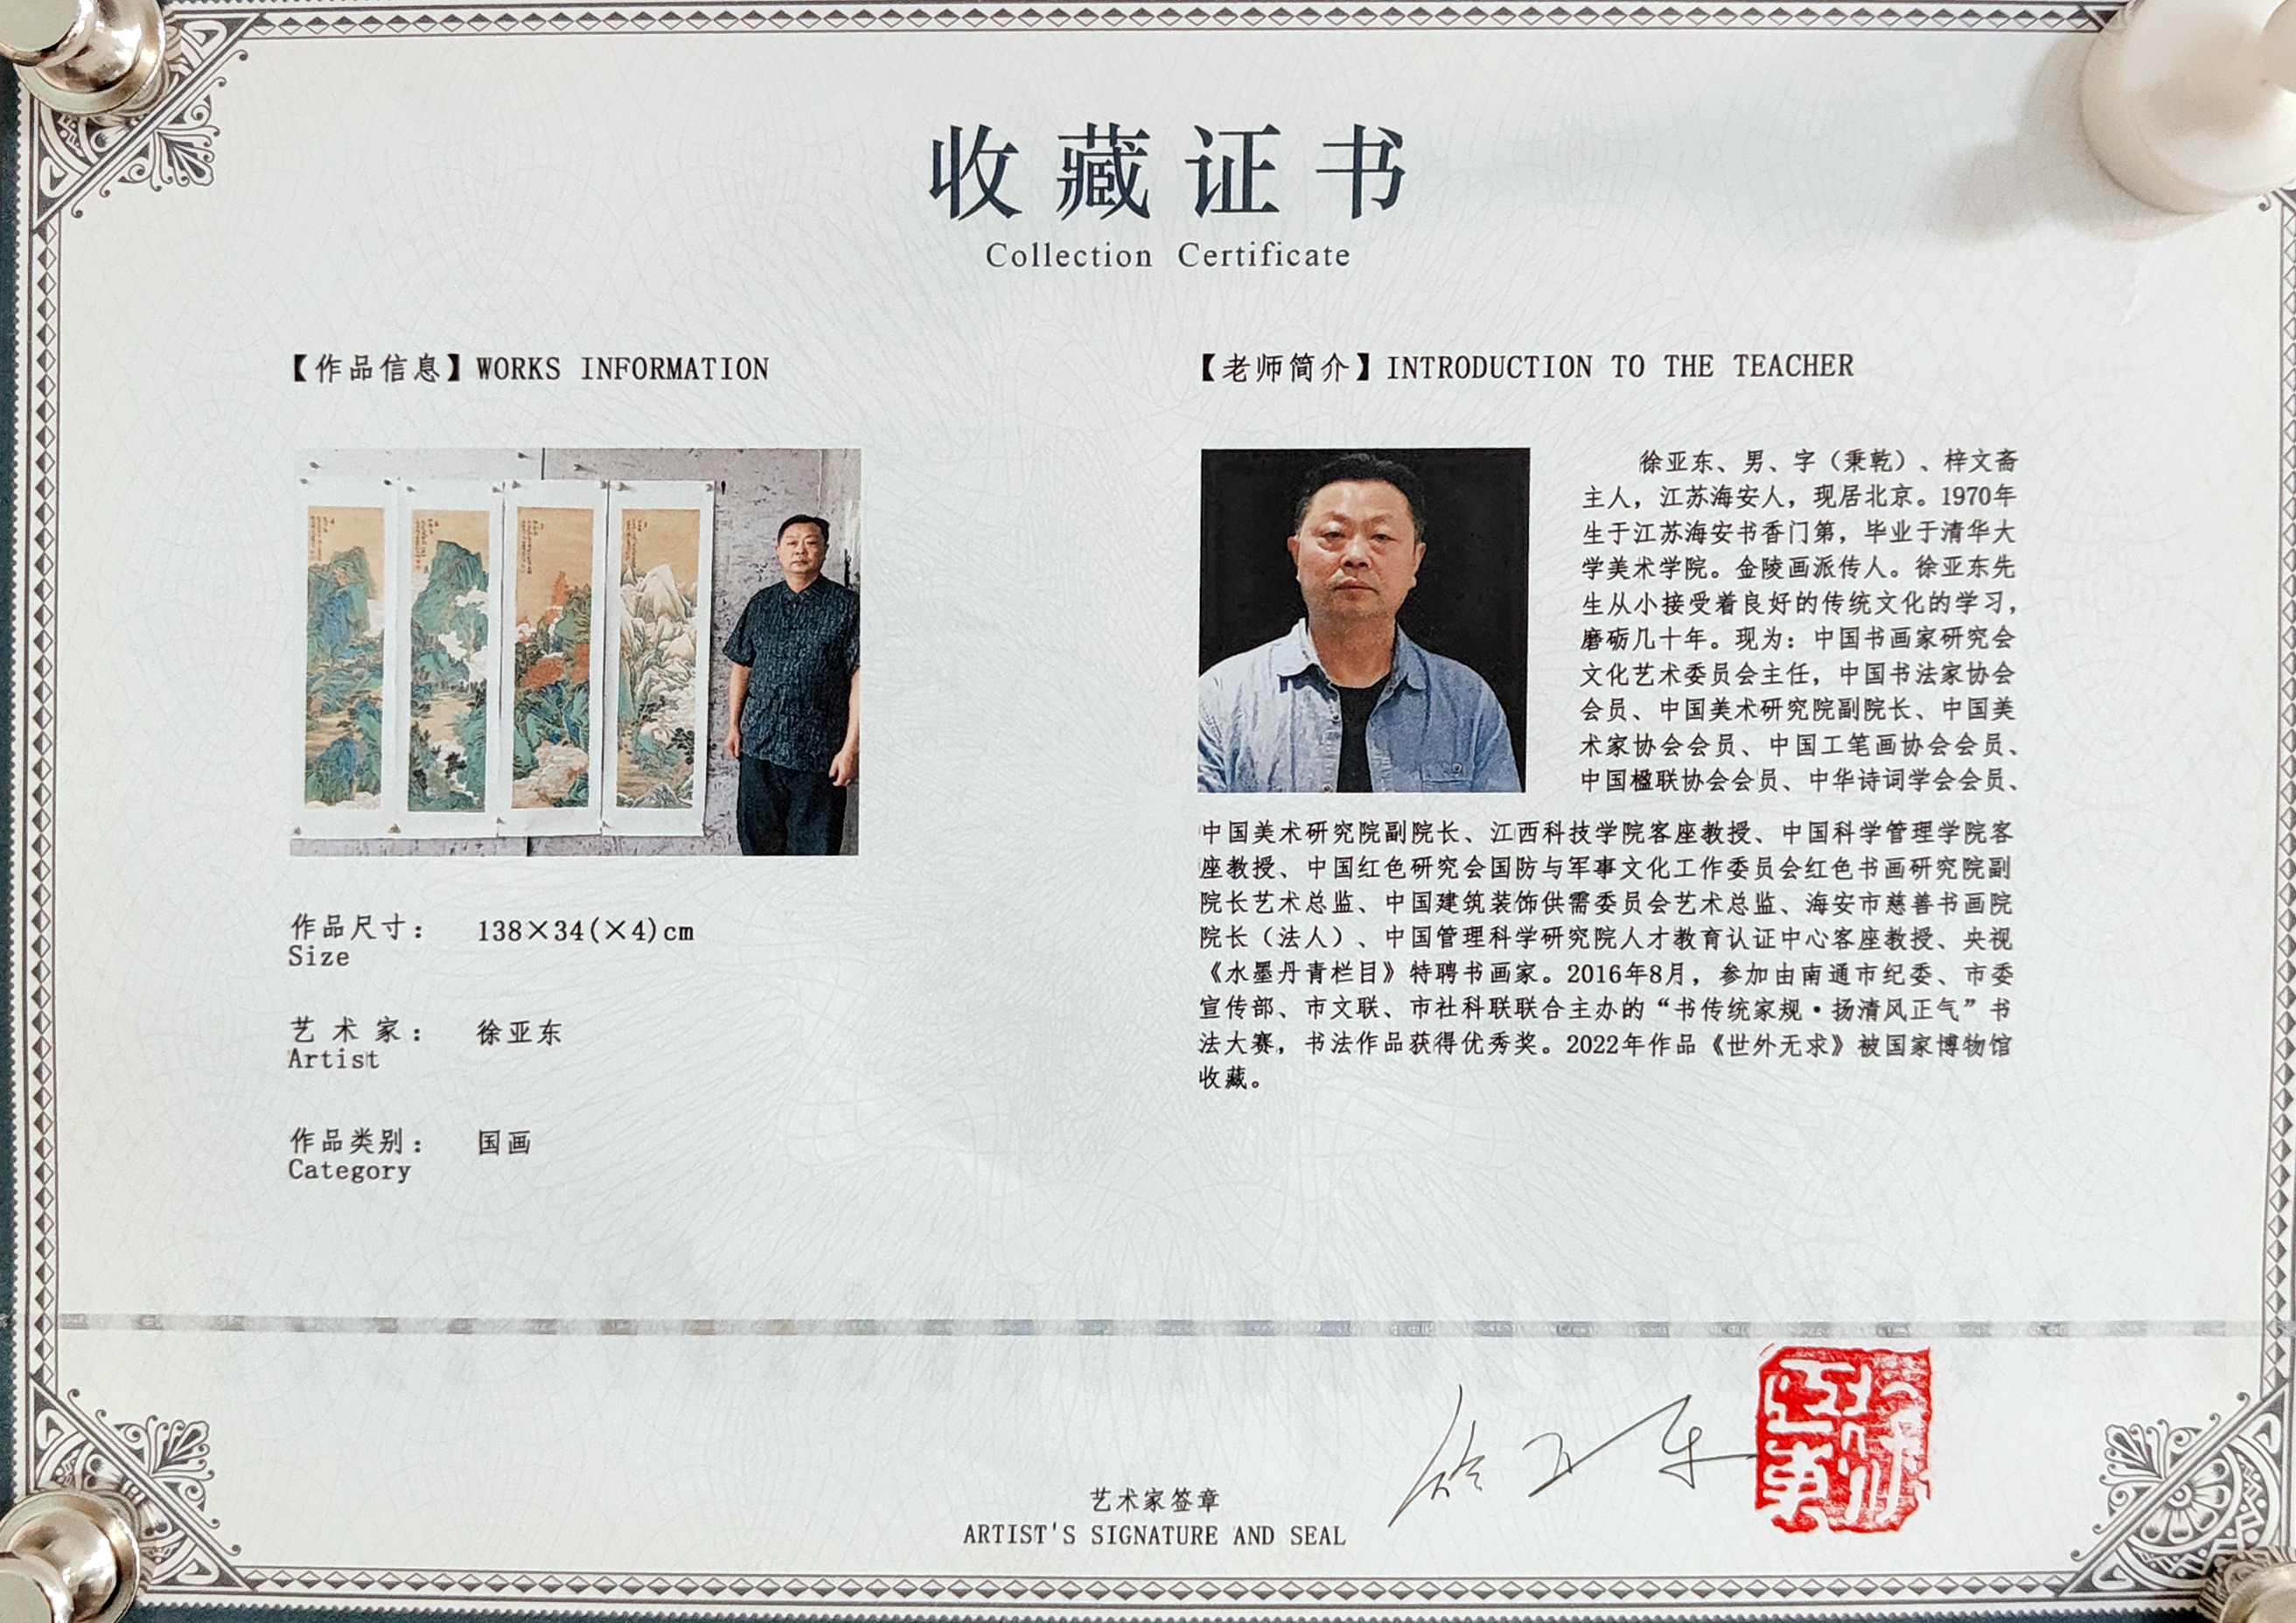 收藏证书
Collection Certificate
【作品信息】WORKS INFORMATION
作品尺寸： 138×34(×4)cm
Size
艺术家： 徐亚东
Artist
作品类别： 国画
Category
【老师简介】INTRODUCTION TO THE TEACHER
徐亚东、男、字（秉乾）、梓文斋
主人，江苏海安人，现居北京。1970年
生于江苏海安书香门第，毕业于清华大
学美术学院。金陵画派传人。徐亚东先
生从小接受着良好的传统文化的学习，
磨砺几十年。现为：中国书画家研究会
文化艺术委员会主任，中国书法家协会
会员、中国美术研究院副院长、中国美
术家协会会员、中国工笔画协会会员、
中国楹联协会会员、中华诗词学会会员、
中国美术研究院副院长、江西科技学院客座教授、中国科学管理学院客
座教授、中国红色研究会国防与军事文化工作委员会红色书画研究院副
院长艺术总监、中国建筑装饰供需委员会艺术总监、海安市慈善书画院
院长（法人）、中国管理科学研究院人才教育认证中心客座教授、央视
《水墨丹青栏目》特聘书画家。2016年8月，参加由南通市纪委、市委
宣传部、市文联、市社科联联合主办的“书传统家规·扬清风正气”书
法大赛，书法作品获得优秀奖。2022年作品《世外无求》被国家博物馆
收藏。
徐亚东
艺术家签章
ARTIST'S SIGNATURE AND SEAL